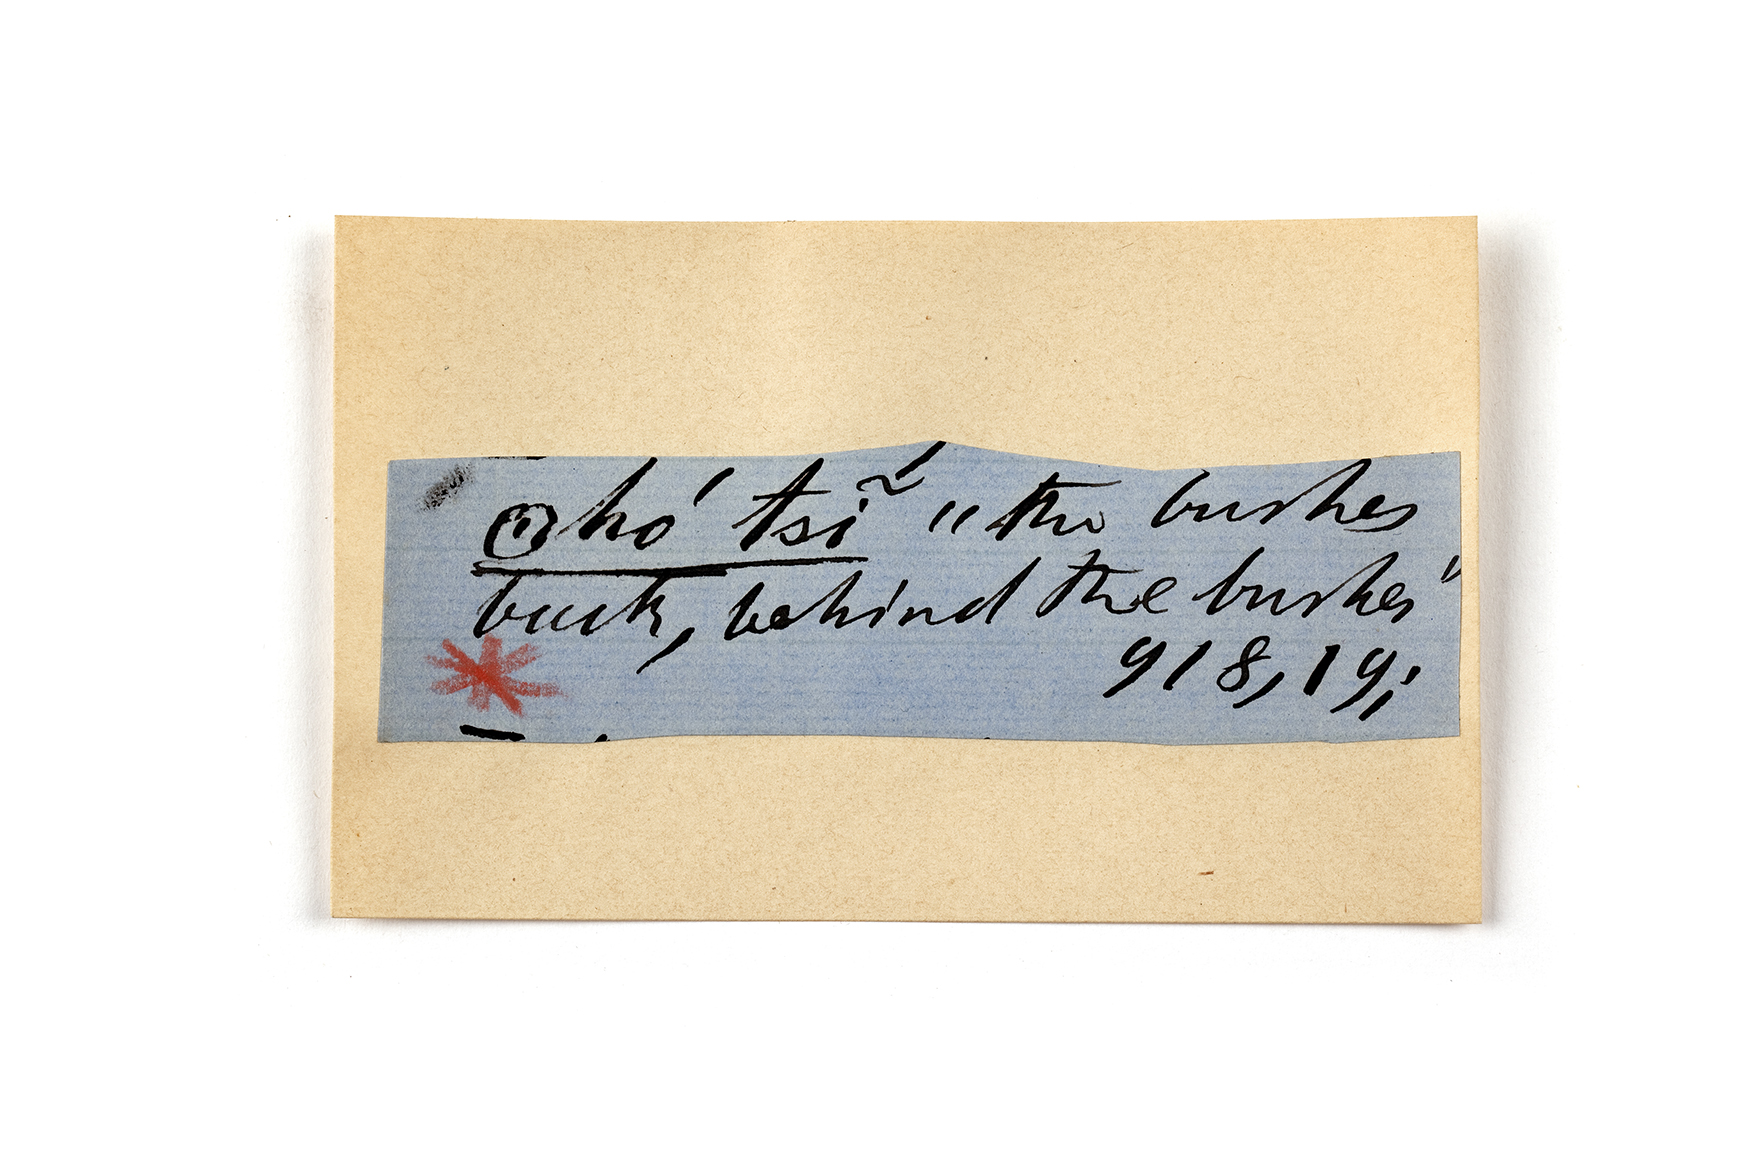 ʘhó tsĩ́ "the bushes
back, behind the bushes"
918,19;